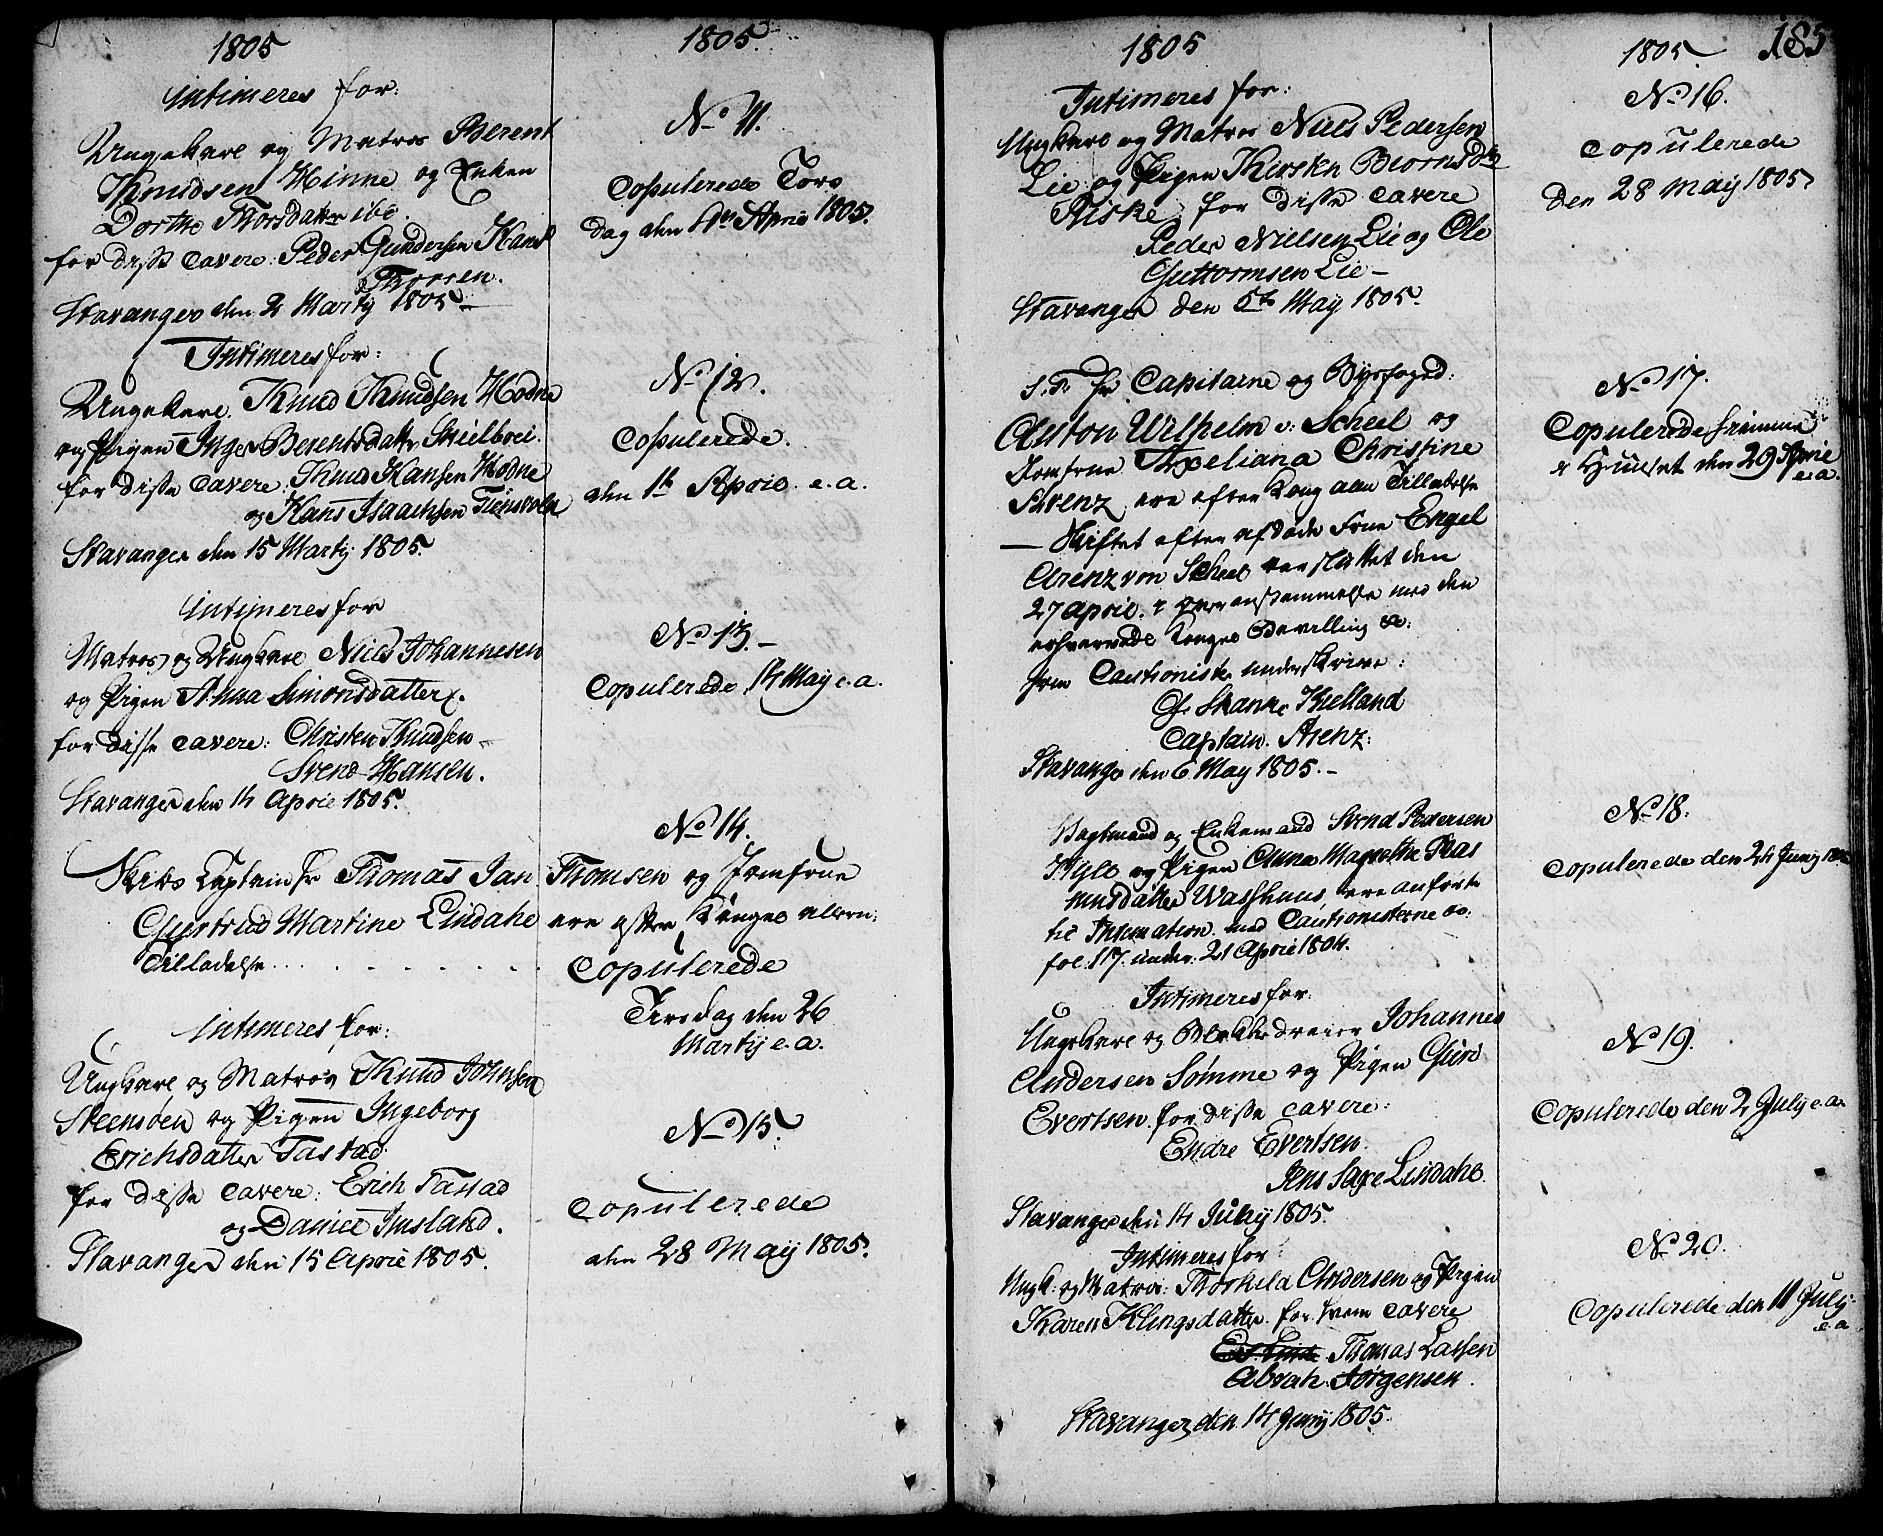 1805
Intimeres for:
Ungekarl og Matros Berent
Knudsen Hinne og Enken
Dorthe Thorsdatter ibd.
for disse cavere: Peder Gundersen Hans
Thorsen.
Stavanger den 2 Martij 1805
Intimeres for:
Ungekarl Knud Knudsen Hodne
og Pigen Inger Berentsdattr Skielbrei.
for disse cavere. Knud Hansen Hodne
og Hans Isaachsen Tiensvold
Stavanger den 15 Martij 1805
Intimeres for
Matros og Ungkarl Niels Johannesen
og Pigen Anna Simonsdatter
for disse cavere: Christen Knudsen
Svend Hansen.
Stavanger den 14 April 1805.
Skibs Captain hr Thomas Jan Thomsen og Jomfrue
Giertrud Martine Lindahl ere efter Konges allern:
Tilladelse . . . . . . . Copulerede
Intimeres for:
Ungkarl og Matros Knud Johnsen
Steensøen og Pigen Ingeborg
Erichsdatter Tastad
for disse cavere: Erich Tastad
og Daniel Imsland.
Stavanger den 15 April 1805.
1805.
No 11.
Copulerede Tors
dag den 4de April 1805.
No 12.
Copulerede.
den 1te April e.a.
No 13.
Copulerede 14 May e.a.
No 14.
Tirsdag den 26
Martij e.a.
No 15.
Copulerede
den 28 Maij 1805.
1805
Intimeres for:
Ungkarl og Matros Niels Pedersen
Lie og Pigen Kirsten Biornsdtr
Riske, for disse cavere
Peder Nielsen Lie og Ole
Guttormsen Lie
Stavanger den 5te May 1805.
S.T. hr Capitaine og Byefoged:
Anton Wilhelm v: Scheel og
Jomfrue Axeliana Christine
Arenz, ere efter Kong allern Tilladelse
Skiftet efter afdøde Frue Engel
Arenz von Scheel var sluttet den
27 April. i overensstemmelse med den
erhvervede Konges Bevilling &c:
som Cautionister underskrive:
G. Schanke Kielland
Captain Arenz:
Stavanger den 6 May 1805.
Vagtmand og Enkemand Svend Pedersen
Kyle og Pigen Anna Magrethe Ras
musdatter Waskhuus, ere anførte
til Intimation med Cautionisterne
fol: 117. under 21 April 1804.
Intimeres for:
Ungekarl og Blokkedreier Johannes
Andersen Sømme og Pigen Guri
Evertsen. for disse cavere:
Endre Evertsen.
Jens Saxe Lindahl.
Stavanger den 14 Junij 1805.
Intimeres for:
Ungk: og Matros: Thorkild Andersen og Pigen
Karen Klingsdatter. for hvem cavere
Thomas Lassen
Abrah. Jørgensen.
Stavanger den 14 Junij 1805.
185
1805.
No 16.
Copulerede
Den 28 Maij 1805.
No 17.
Copulerede hiemme
i Huuset den 29 April
e.a.
No 18.
Copulerede den 24 Junij 1805
No 19.
Copulerede den 2 Julij e.a.
No 20.
Copulerede den 11 Julij
e.a